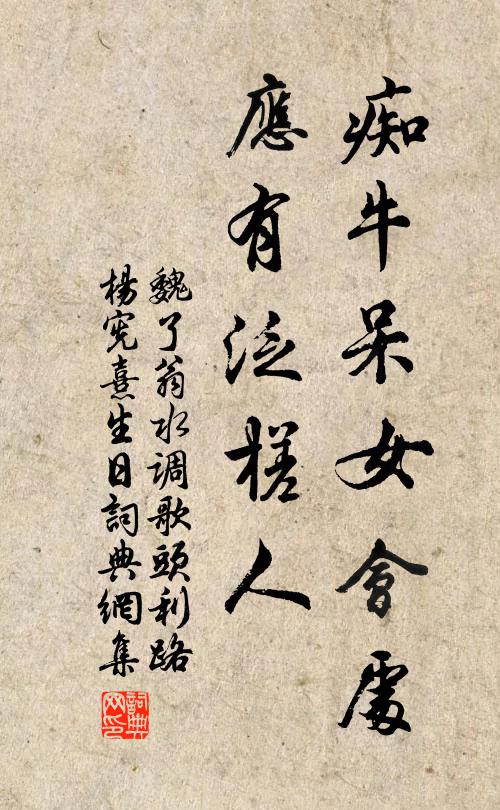 痴牛呆女會處
應有泛槎人
魏了翁水調歌頭利路
楊宪熹生日詞典網集
詞典
网印